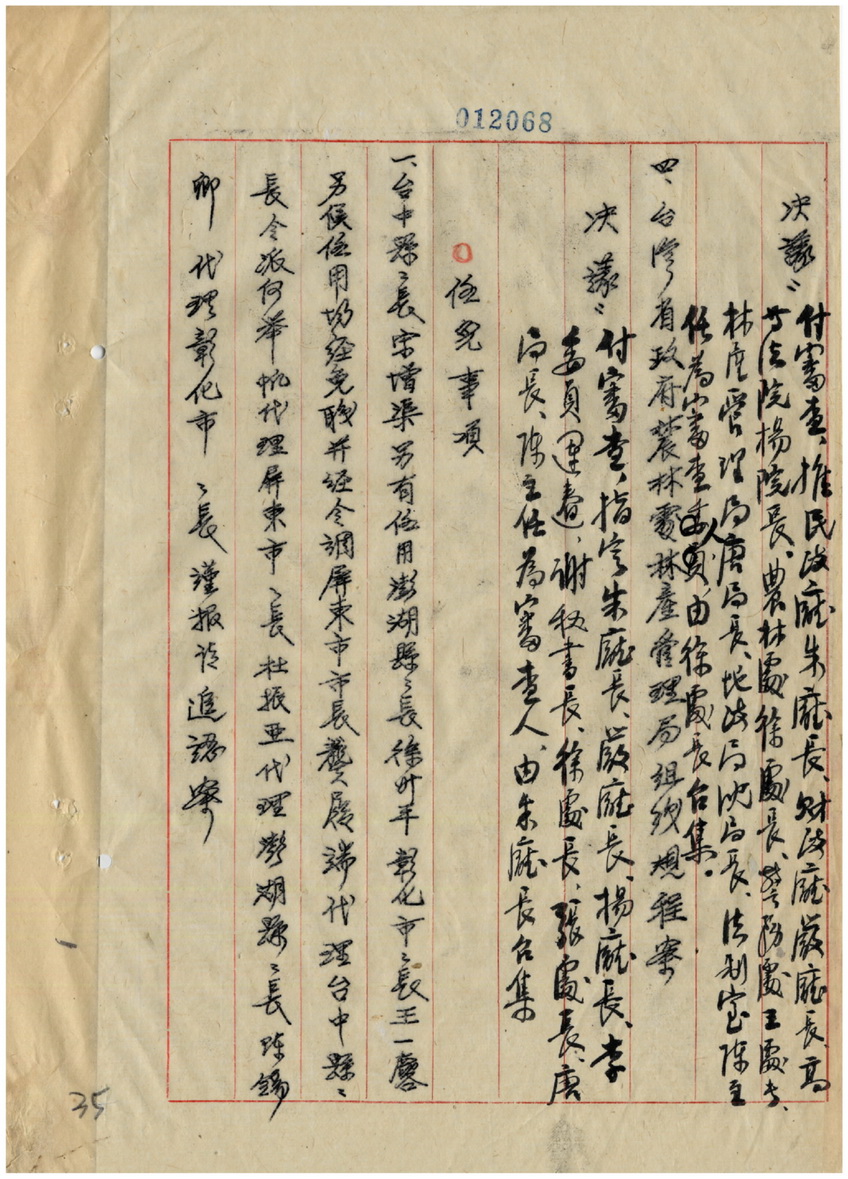 012068
決議:
付審查、推民政廳朱廳長、財政廳嚴廳長、高
等法院楊院長、農林處徐處長、警務處王處長、
林產管理局唐局長、地政局沈局長、法制室陳主
任為審查人、由徐處長召集。
四、台灣省政府農林處林產管理局組織規程案
決議:
付審查、指定朱廳長、嚴廳長、楊廳長、李
委員連春、謝秘書長、徐處長、張處長、唐
局長、陳主任為審查人、由朱廳長召集
○任免事項
一、台中縣々長宋增榘另有任用澎湖縣々長徐卅年彰化市々長王一麐
另候任用均經免職并經令調屏東市市長龔履端代理台中縣々
長令派何舉帆代理屏東市々長杜振亞代理澎湖縣々長陳錫
卿代理彰化市々長謹報請追認案
35